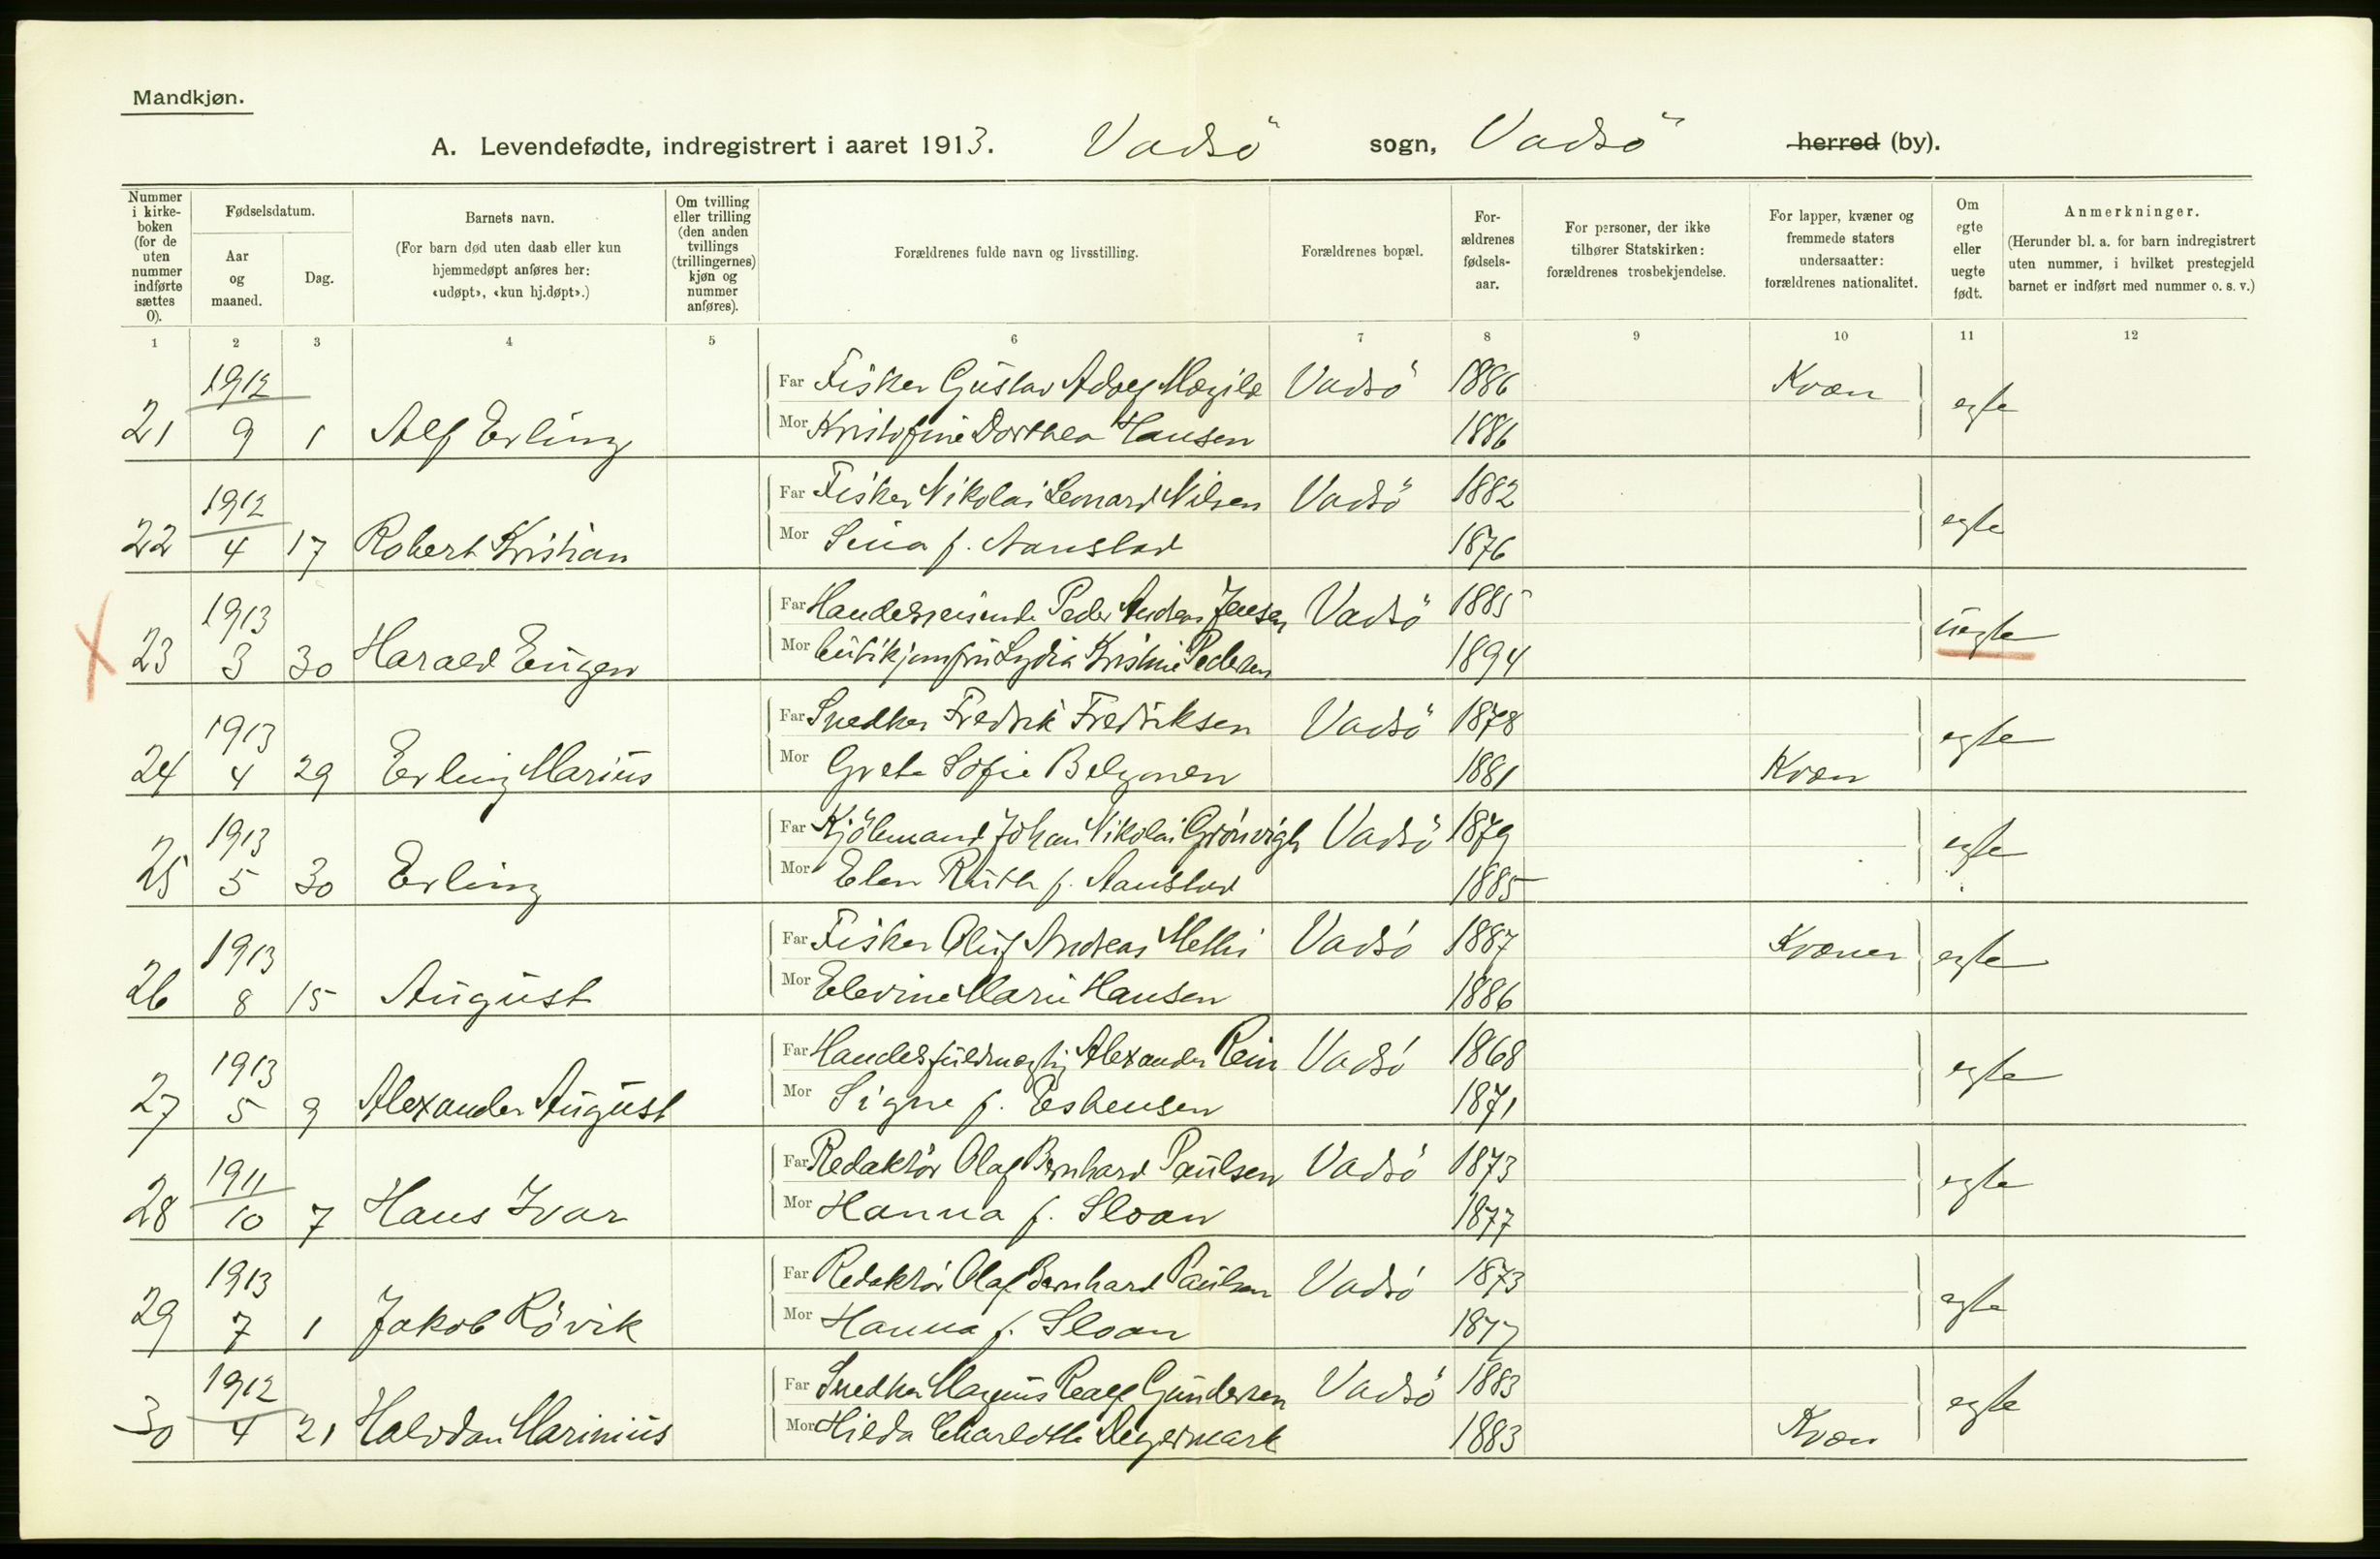 Mandkjøn.
A. Levendefødte, indregistrert i aaret 1913. Vadsö sogn, Vadsö herred (by).
Nummer i kirke-boken (for de uten nummer indførte sættes 0).
Fødselsdatum.
Aar og maaned.
Dag.
Barnets navn.
(For barn død uten daab eller kun hjemmedøpt anføres her: «udøpt», «kun hj.døpt».)
Om tvilling eller trilling (den anden tvillings (trillingernes) kjøn og nummer anføres).
Forældrenes fulde navn og livsstilling.
Forældrenes bopæl.
For-ældrenes fødsels-aar.
For personer, der ikke tilhører Statskirken: forældrenes trosbekjendelse.
For lapper, kvæner og fremmede staters undersaatter: forældrenes nationalitet.
Om egte eller uegte født.
Anmerkninger.
(Herunder bl. a. for barn indregistrert uten nummer, i hvilket prestegjeld barnet er indført med nummer o. s. v.)
1 2 3 4 5 6 7 8 9 10 11 12
1912 Far Fisker Gustav Adolf Vadsö 1886 Kvæn egte
21 9 1 Alf Erling Mor Kristofine Dorthea Hansen 1886
1912 Far Fisker Nikolai Leonard Nilsen Vadsö 1882 egte
22 4 17 Robert Kristian Mor f. Aanstad 1876
X 1913 Far Handelsreisende Peder Andreas Jensen Vadsö 1885 uegte
23 3 30 Harald Eugen Mor Butikjomfru Lydia Kristine Pedersen 1894
1913 Far Snedker Fredrik Fredriksen Vadsö 1878 egte
24 4 29 Erling Marius Mor Grete Sofie 1881 Kvæn
1913 Far Johan Nikolai Grönvigh Vadsö 1879 egte
25 5 30 Erling Mor Elen Ruth f. Aanstad 1885
1913 Far Fisker Oluf Andreas Vadsö 1887 Kvæner egte
26 8 15 August Mor Elevine Marie Hansen 1886
1913 Far Handelsfuldmægtig Alexander Rein Vadsö 1868 egte
27 5 9 Alexander August Mor Signe f. Esbensen 1871
1911 Far Redaktör Olaf Bernhard Paulsen Vadsö 1873 egte
28 10 7 Hans Ivar Mor Hanna f. Sloan 1877
1913 Far Redaktör Olaf Bernhard Paulsen Vadsö 1873 egte
29 7 1 Jakob Rövik Mor Hanna f. Sloan 1877
1912 Far Snedker Magnus Gundersen Vadsö 1883 egte
30 4 21 Halvdan Marinius Mor Hilda Charlotte Degermark 1883 Kvæn